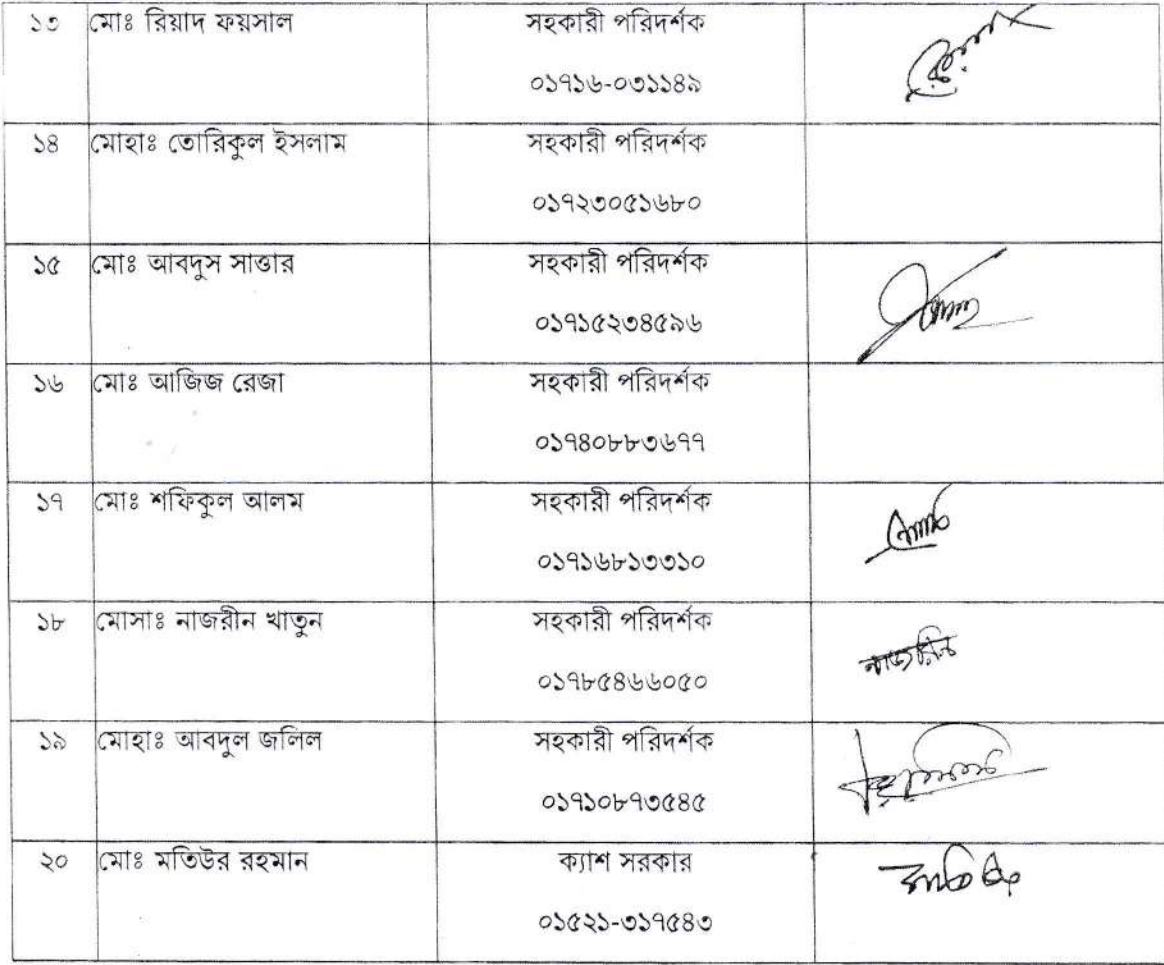 ১৩ মোঃ রিয়াদ ফয়সাল সহকারী পরিদর্শক
০১৭১৬-০৩১১৪৯
১৪ মোহাঃ তোরিকুল ইসলাম সহকারী পরিদর্শক
০১৭২৩০৫১৬৮০
১৫ মোঃ আবদুস সাত্তার সহকারী পরিদর্শক
০১৭১৫২৩৪৫৯৬
১৬ মোঃ আজিজ রেজা সহকারী পরিদর্শক
০১৭৪০৮৮৩৬৭৭
১৭ মোঃ শফিকুল আলম সহকারী পরিদর্শক
০১৭১৬৮১৩৩১০
১৮ মোসাঃ নাজরীন খাতুন সহকারী পরিদর্শক
০১৭৮৫৪৬৬০৫০ নাজরীন
১৯ মোহাঃ আবদুল জলিল সহকারী পরিদর্শক
০১৭১০৮৭৩৫৪৫
২০ মোঃ মতিউর রহমান ক্যাশ সরকার
০১৫২১-৩১৭৫৪৩